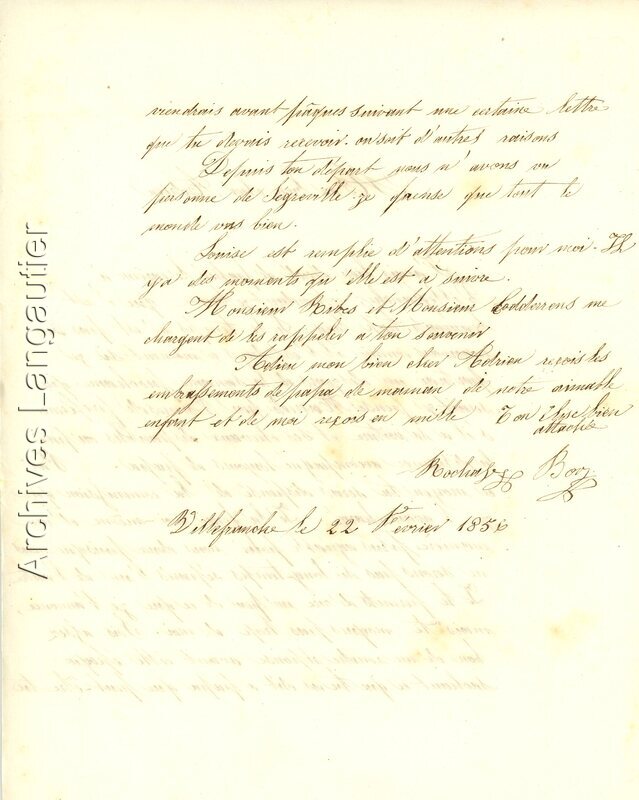 viendrais avant pâques suivant une certaine lettre
que tu devais recevoir. ou soit d'autres raisons
Depuis ton départ nous n'avons vu
personne de Segreville. je pense que tout le
monde vas bien.
Louise est remplie d'attentions pour moi. Il
y a des moments qu'elle est à suivre.
Monsieur Ribes et Monsieur me
chargent de les rappeler à ton souvenir
Adieu mon bien cher Adrien reçois les
embrassements de papa de maman de notre aimable
enfant et de moi reçois en mille Ton Elise bien
attachée
Bory
Villefranche le 22 Février 1856
Archives Langautier